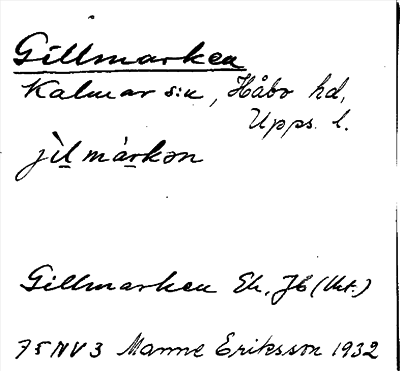 Gillmarken
Kalmar s:n, Håbo hd,
Upps. l.
jìl màrkən
Gillmarken Ek, JK (Utt.)
75 NV 3 Manne Eriksson 1932